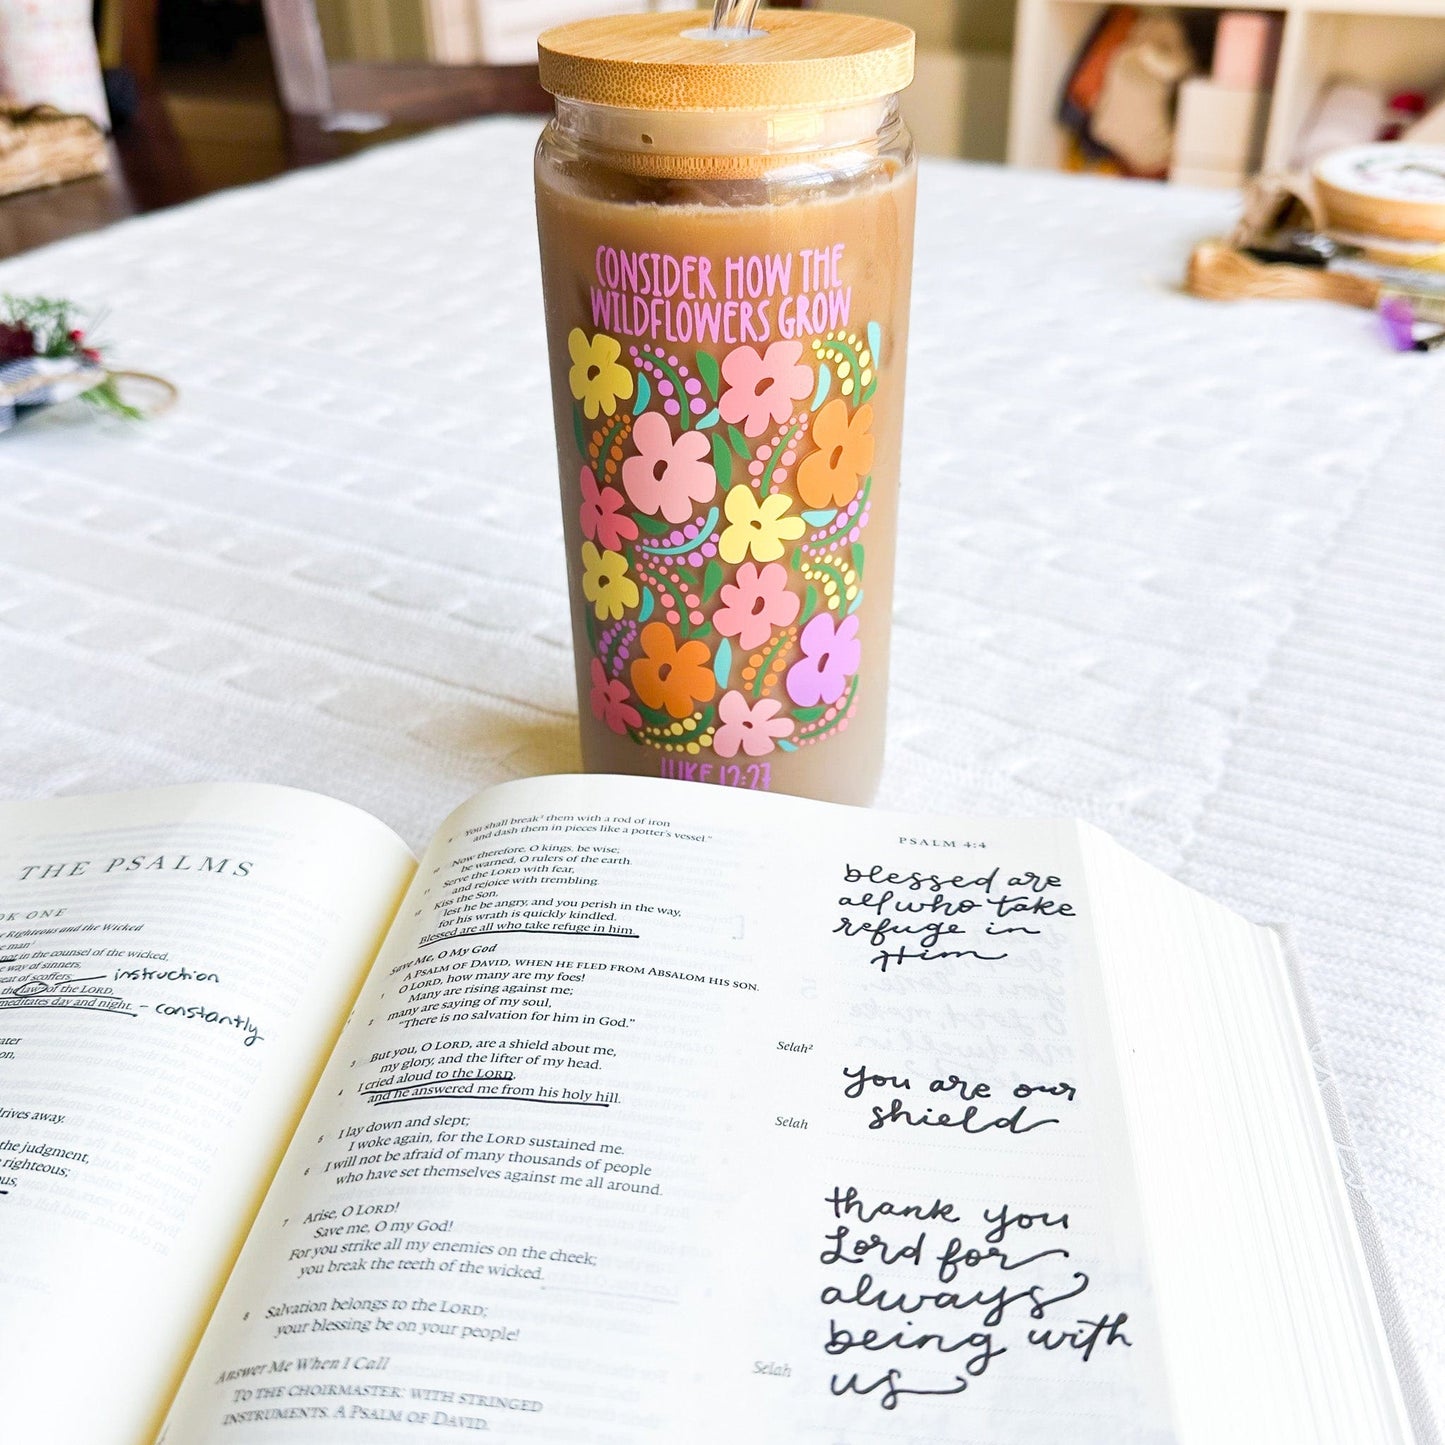 CONSIDER HOW THE
WILDFLOWERS GROW
LUKE 12:27
THE PSALMS
OK ONE
Righteous and the Wicked
man¹
not in the counsel of the wicked,
way of sinners,
seat of scoffers;
instruction
the law of the LORD,
meditates day and night.
- constantly
drives away.
the judgment,
righteous;
9 You shall break² them with a rod of iron
and dash them in pieces like a potter's vessel."
10 Now therefore, O kings, be wise;
be warned, O rulers of the earth.
11 Serve the LORD with fear,
and rejoice with trembling.
12 Kiss the Son,
lest he be angry, and you perish in the way,
for his wrath is quickly kindled.
Blessed are all who take refuge in him.
Save Me, O My God
A PSALM OF DAVID, WHEN HE FLED FROM ABSALOM HIS SON.
1 O LORD, how many are my foes!
Many are rising against me;
2 many are saying of my soul,
"There is no salvation for him in God."
Selah²
3 But you, O LORD, are a shield about me,
my glory, and the lifter of my head.
4 I cried aloud to the LORD,
and he answered me from his holy hill.
Selah
5 I lay down and slept;
I woke again, for the LORD sustained me.
6 I will not be afraid of many thousands of people
who have set themselves against me all around.
7 Arise, O LORD!
Save me, O my God!
For you strike all my enemies on the cheek;
you break the teeth of the wicked.
8 Salvation belongs to the LORD;
your blessing be on your people!
Selah
Answer Me When I Call
TO THE CHOIRMASTER: WITH STRINGED
INSTRUMENTS. A PSALM OF DAVID.
PSALM 4:4
blessed are
all who take
refuge in
Him
you are our
shield
thank you
Lord for
always
being with
us